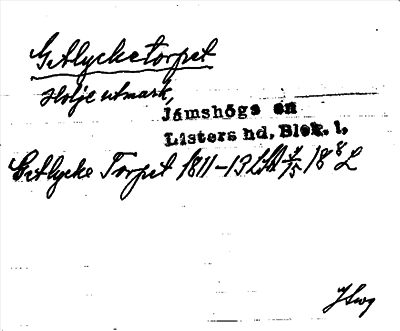 Getlycketorpet
Holje utmark,
Jämshögs sn
Listers hd, Blek. l.
Getlycke Torpet 1811-13 LSA